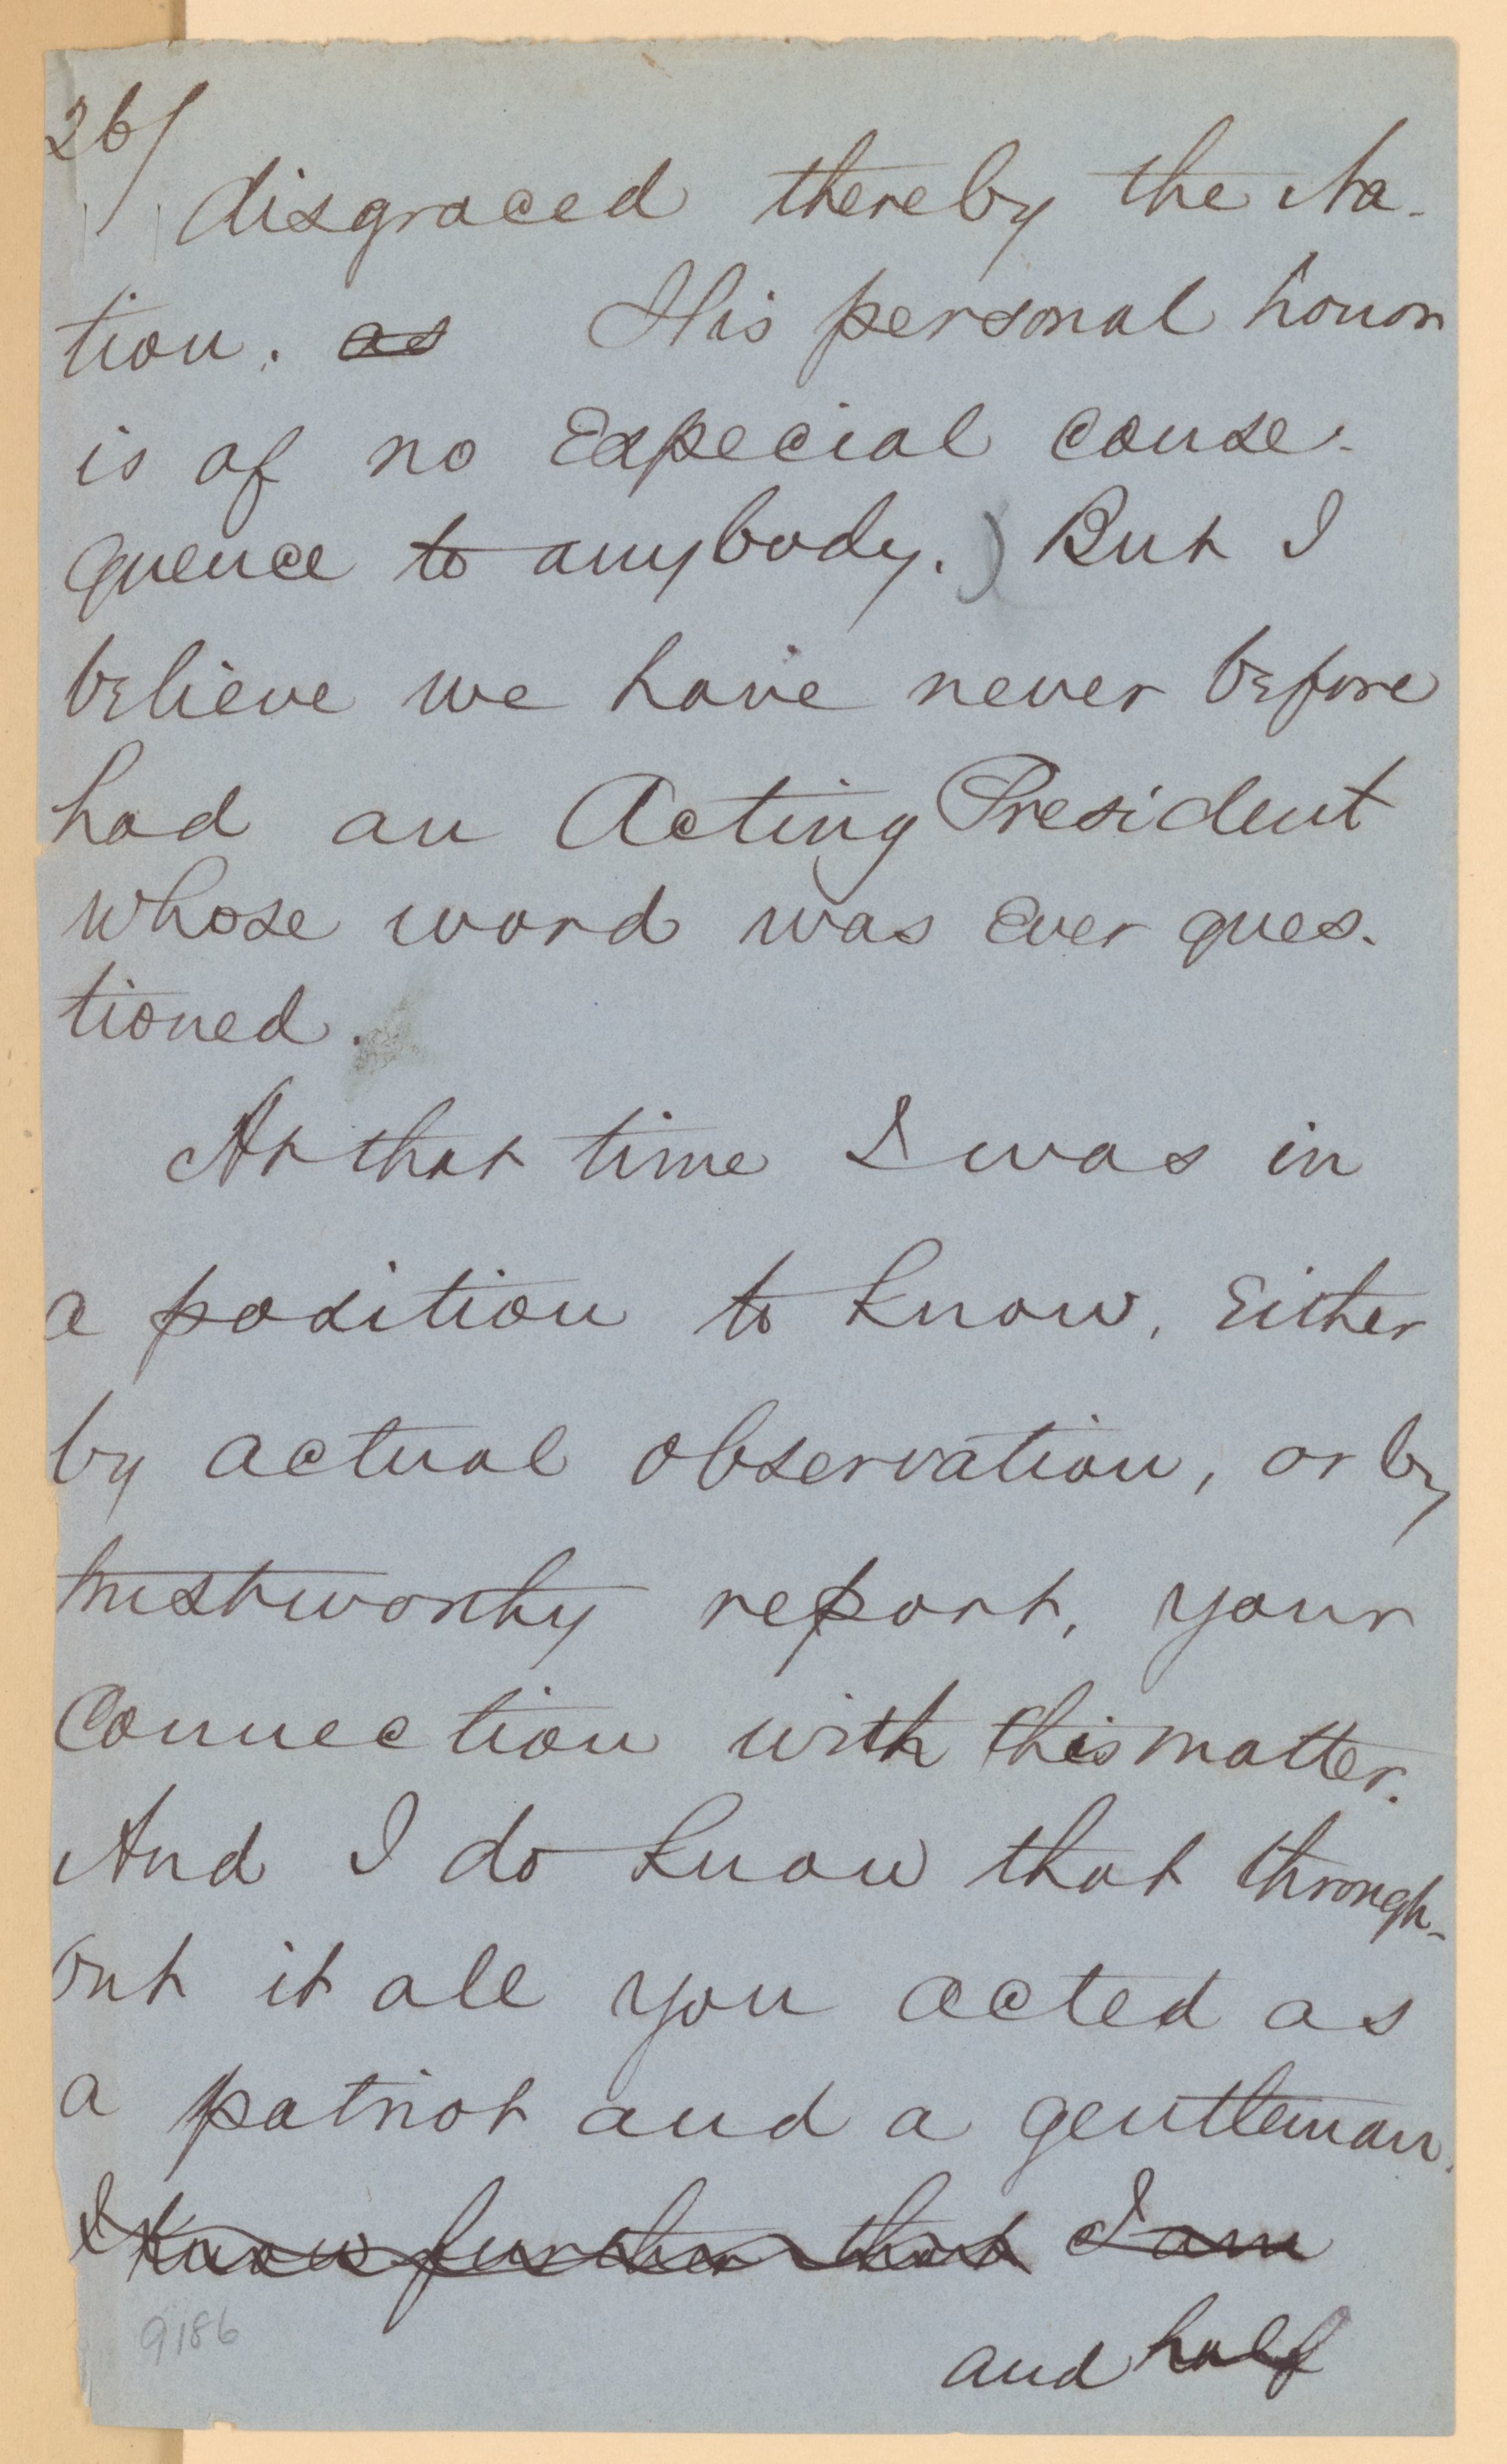 26/
disgraced thereby the Na-
tion. as His personal honor
is of no especial conse-
quence to anybody.) But I
believe we have never before
had an Acting President
whose word was ever ques-
tioned.
At that time I was in
a position to know, either
by actual observation, or by
trustworthy report, your
connection with this matter.
And I do know that through-
out it all you acted as
a patriot and a gentleman.
I know further that I am
and half
9186